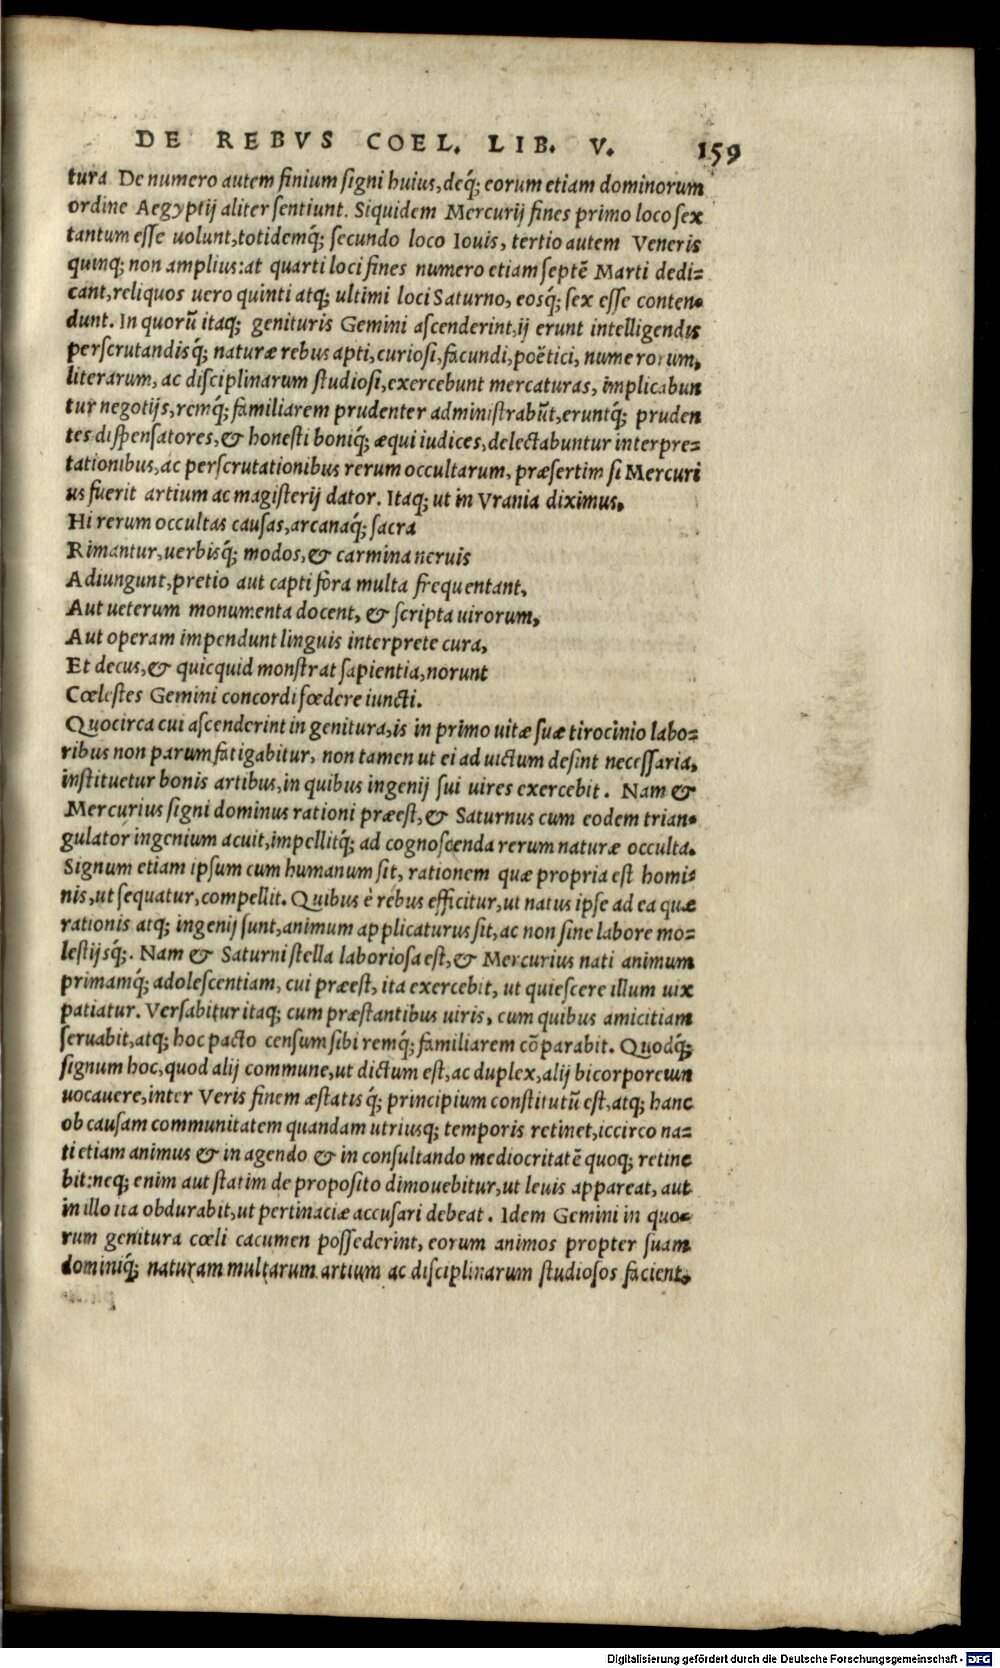 DE REBVS COEL. LIB. V. 159
tura De numero autem finium signi huius, deq́; eorum etiam dominorum
ordine Aegyptij aliter sentiunt. Siquidem Mercurij fines primo loco sex
tantum esse uolunt, totidemq́; secundo loco Iouis, tertio autem Veneris
quinq; non amplius: at quarti loci fines numero etiam septē Marti dedi=
cant, reliquos uero quinti atq; ultimi loci Saturno, eosq́; sex esse conten=
dunt. In quorū itaq; genituris Gemini ascenderint, ij erunt intelligendis
perscrutandisq́; naturæ rebus apti, curiosi, facundi, poëtici, numerorum,
literarum, ac disciplinarum studiosi, exercebunt mercaturas, implicabun
tur negotijs, remq́; familiarem prudenter administrabūt, eruntq́; pruden
tes dispensatores, & honesti boniq́; æqui iudices, delectabuntur interpre=
tationibus, ac perscrutationibus rerum occultarum, præsertim si Mercuri
us fuerit artium ac magisterij dator. Itaq; ut in Vrania diximus.
Hi rerum occultas causas, arcanaq́; sacra
Rimantur, uerbisq́; modos, & carmina neruis
Adiungunt, pretio aut capti fora multa frequentant,
Aut ueterum monumenta docent, & scripta uirorum,
Aut operam impendunt linguis interprete cura,
Et decus, & quicquid monstrat sapientia, norunt
Cœlestes Gemini concordi fœdere iuncti.
Quocirca cui ascenderint in genitura, is in primo uitæ suæ tirocinio labo=
ribus non parum fatigabitur, non tamen ut ei ad uictum desint necessaria,
instituetur bonis artibus, in quibus ingenij sui uires exercebit. Nam &
Mercurius signi dominus rationi præest, & Saturnus cum eodem trian=
gulator ingenium acuit, impellitq́; ad cognoscenda rerum naturæ occulta.
Signum etiam ipsum cum humanum sit, rationem quæ propria est homi=
nis, ut sequatur, compellit. Quibus è rebus efficitur, ut natus ipse ad ea quæ
rationis atq; ingenij sunt, animum applicaturus sit, ac non sine labore mo=
lestijsq́;. Nam & Saturni stella laboriosa est, & Mercurius nati animum
primamq́; adolescentiam, cui præest, ita exercebit, ut quiescere illum uix
patiatur. Versabitur itaq; cum præstantibus uiris, cum quibus amicitiam
seruabit, atq; hoc pacto censum sibi remq́; familiarem cōparabit. Quodq́;
signum hoc, quod alij commune, ut dictum est, ac duplex, alij bicorporeum
uocauere, inter Veris finem æstatisq́; principium constitutū est, atq; hanc
ob causam communitatem quandam utriusq; temporis retinet, iccirco na=
ti etiam animus & in agendo & in consultando mediocritatē quoq; retine
bit: neq; enim aut statim de proposito dimouebitur, ut leuis appareat, aut
in illo ita obdurabit, ut pertinaciæ accusari debeat. Idem Gemini in quo=
rum genitura cœli cacumen possederint, eorum animos propter suam
dominiq́; naturam multarum artium ac disciplinarum studiosos facient.
Digitalisierung gefördert durch die Deutsche Forschungsgemeinschaft - DFG